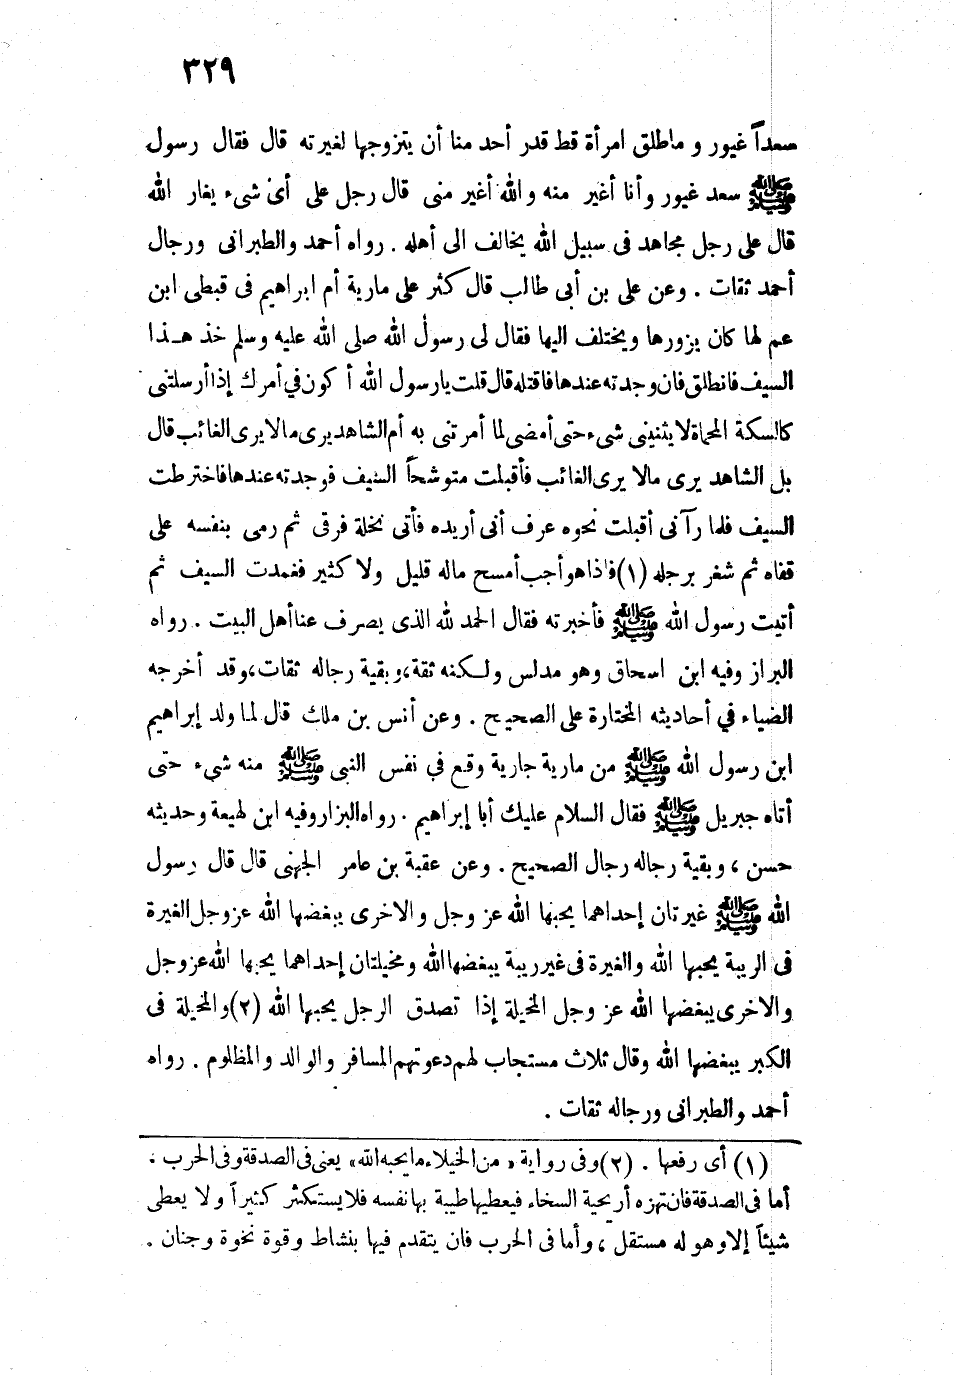 ٣٢٩
سعداً غيور و ماطلق امرأة قط قدر أحد منا أن يتزوجها لغيرته قال فقال رسول
ﷺ سعد غيور وأنا أغير منه والله أغير منى قال رجل على أى شىء يغار الله
قال على رجل مجاهد فى سبيل الله يخالف الى أهله . رواه أحمد والطبرانى ورجال
أحمد ثقات . وعن على بن أبى طالب قال كثر على مارية أم ابراهيم فى قبطى ابن
عم لها كان يزورها ويختلف اليها فقال لى رسول الله صلى الله عليه وسلم خذ هـذا
السيف فانطلق فان وجدته عندها فاقتله قال قلت يارسول الله أكون في أمرك إذا أرسلتنى
كالسكة المحماة لا يثنينى شىء حتى أمضى لما أمرتنى به أم الشاهد يرى مالا يرى الغائب قال
بل الشاهد يرى مالا يرى الغائب فأقبلت متوشحاً السيف فوجدته عندها فاخترطت
السيف فلما رآنى أقبلت نحوه عرف أنى أريده فأتى نخلة فرقى ثم رمى بنفسه على
قفاه ثم شغر برجله (١) فاذا هو أجب أمسح ماله قليل ولا كثير فغمدت السيف ثم
أتيت رسول الله ﷺ فأخبرته فقال الحمد لله الذى يصرف عنا أهل البيت . رواه
البزاز وفيه ابن اسحاق وهو مدلس ولـكنه ثقة، وبقية رجاله ثقات، وقد أخرجه
الضياء في أحاديثه المختارة على الصحيح . وعن أنس بن ملك قال لما ولد إبراهيم
ابن رسول الله ﷺ من مارية جارية وقـع في نفس النبى ﷺ منه شىء حتى
أتاه جبريل ﷺ فقال السلام عليك أبا إبراهيم . رواه البزار وفيه ابن لهيعة وحديثه
حسن ، وبقية رجاله رجال الصحيح . وعن عقبة بن عامر الجهنى قال قال رسول
الله ﷺ غيرتان إحداهما يحبها الله عز وجل والاخرى يبغضها الله عز وجل الغيرة
فى الريبة يحبها الله والغيرة فى غير ريبة يبغضها الله ومخيلتان إحداهما يحبها الله عز وجل
والاخرى يبغضها الله عز وجل المخيلة إذا تصدق الرجل يحبها الله (٢) والمخيلة فى
الكبر يبغضها الله وقال ثلاث مستجاب لهم دعوتهم المسافر والوالد والمظلوم . رواه
أحمد والطبرانى ورجاله ثقات .
(١) أى رفعها . (٢) وفى رواية «من الخيلاء ما يحبه الله» يعنى فى الصدقة وفى الحرب ،
أما فى الصدقة فان تهزه أريحية السخاء فيعطيها طيبة بها نفسه فلا يستكثر كثيراً ولا يعطى
شيئاً إلا وهو له مستقل ، وأما فى الحرب فان يتقدم فيها بنشاط وقوة نخوة وجنان .